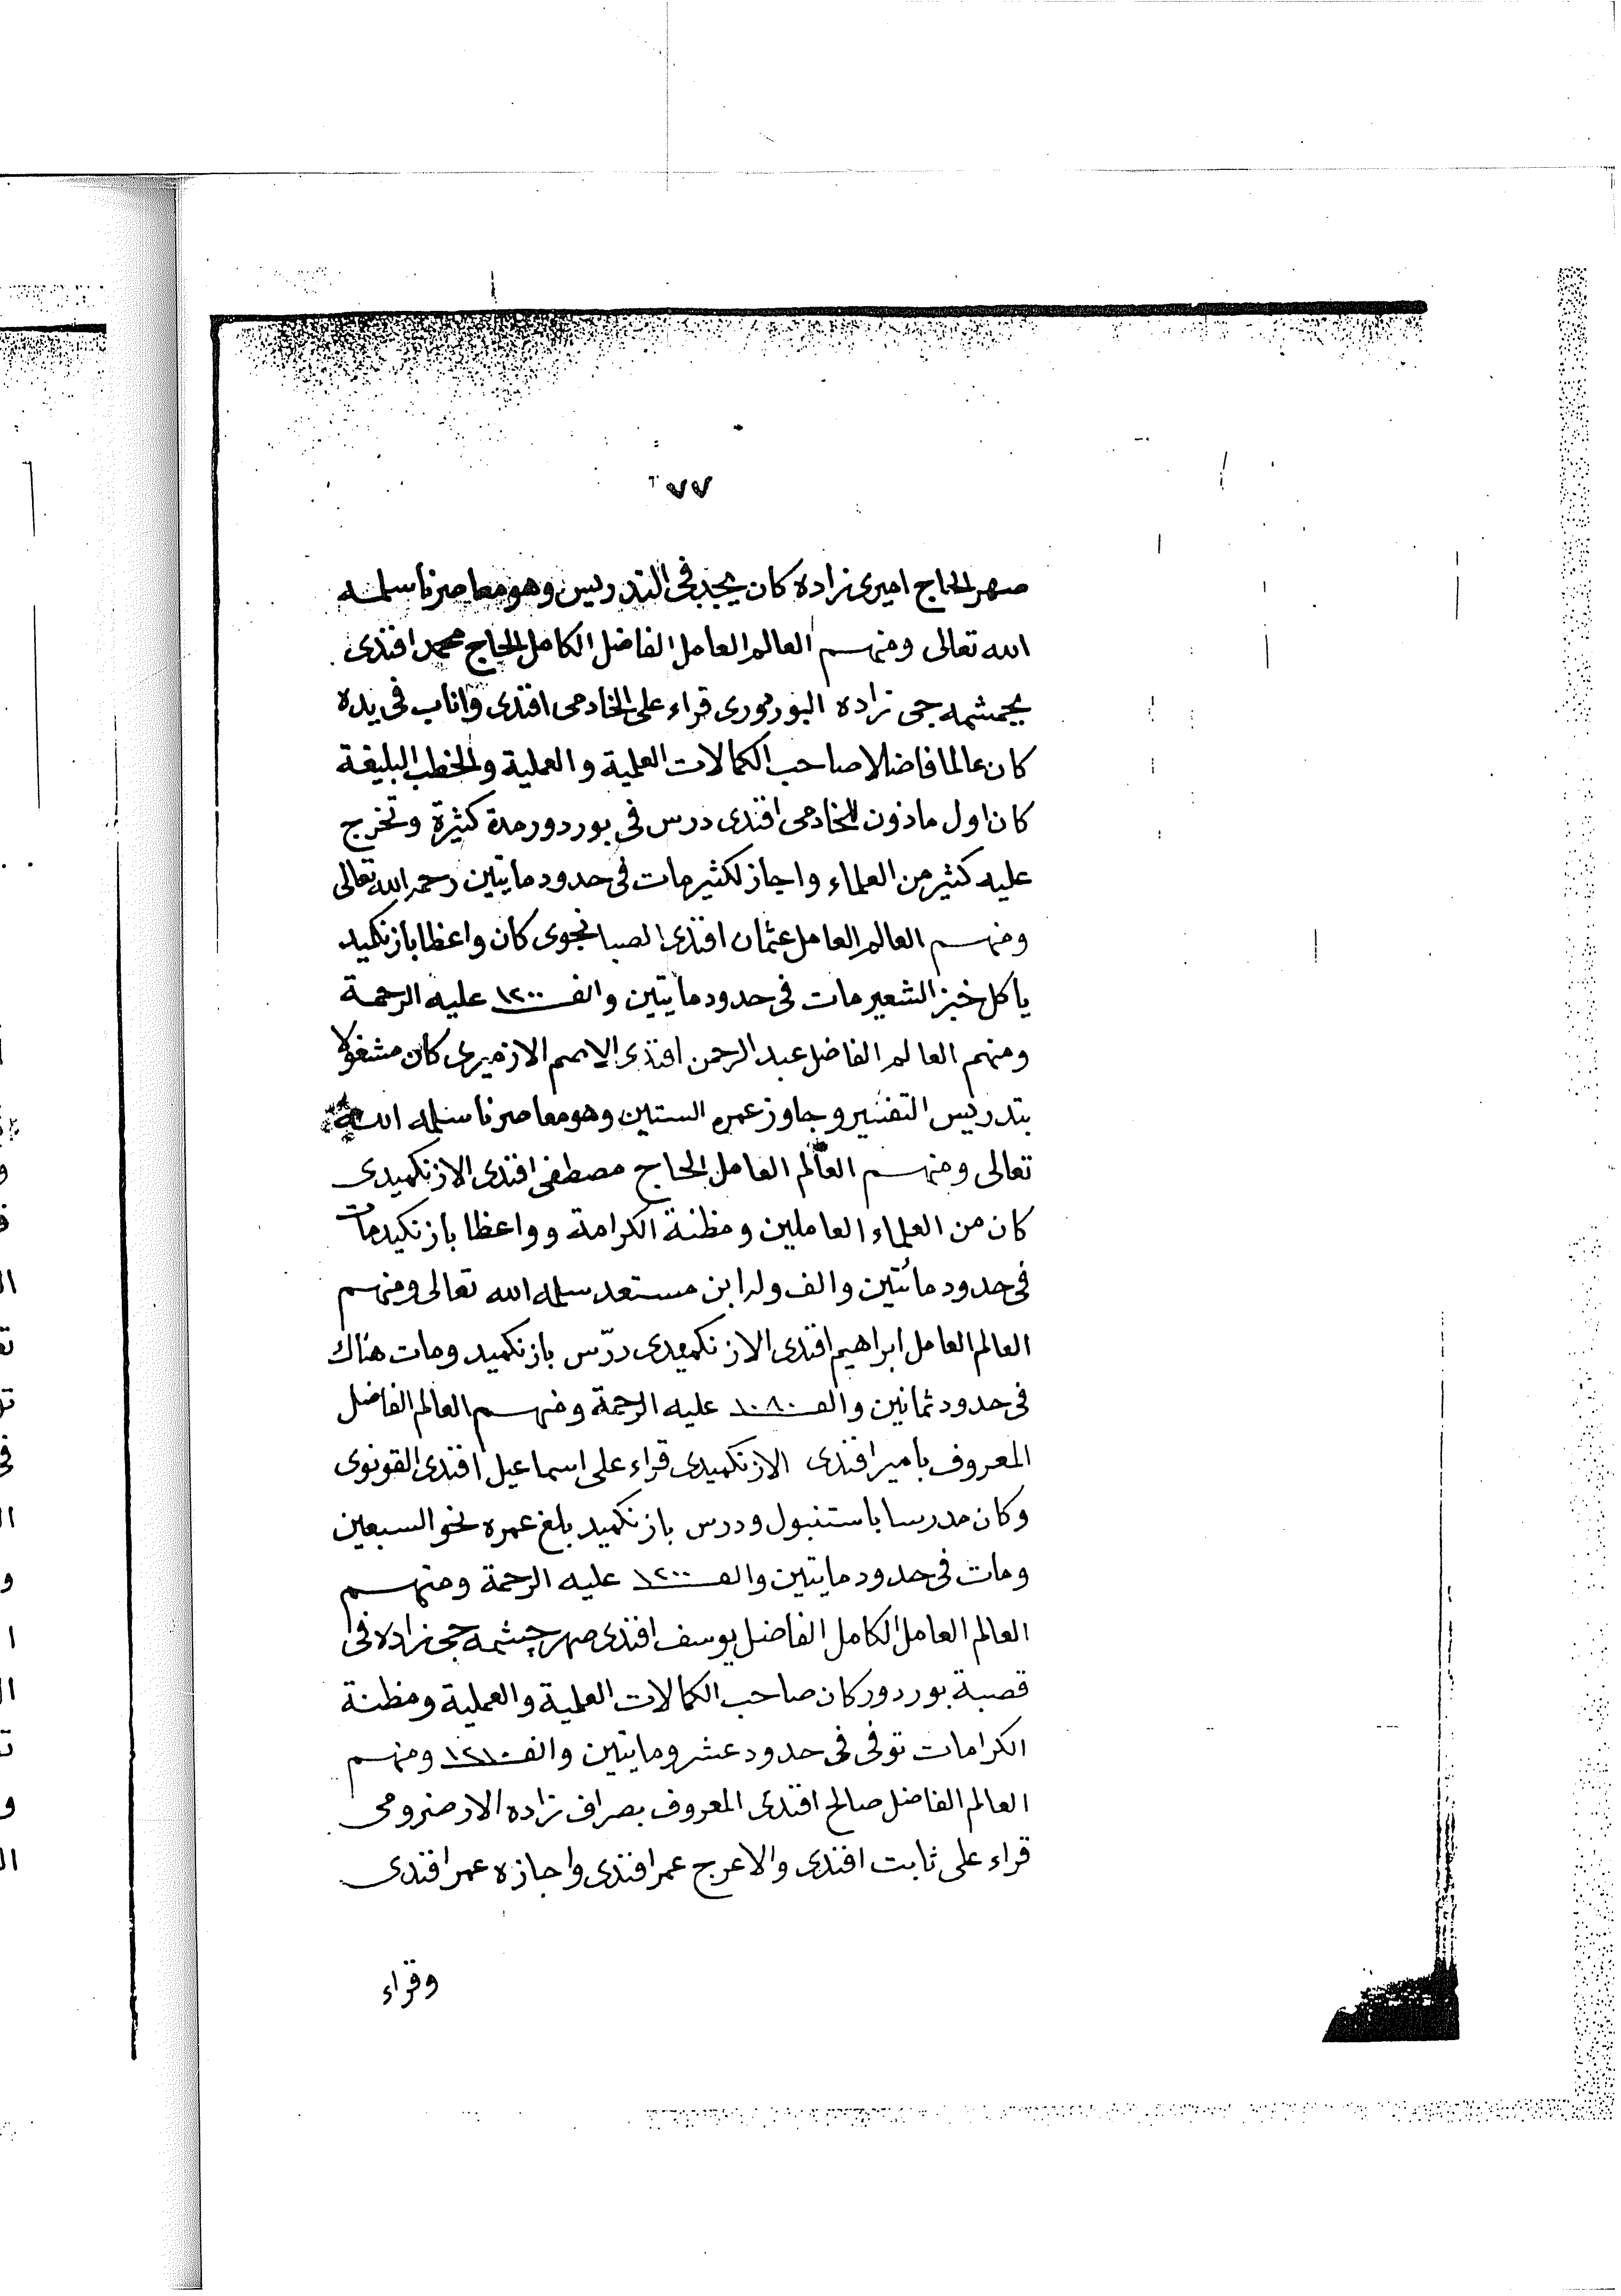 ٧٧
صهر الحاج اميرى زاده كان يجد فى التدريس وهو معاصرنا سلمه
الله تعالى ومنهم العالم العامل الفاضل الكامل الحاج محمد افندى
بچشمه جى زاده البوردورى قراء على الخادمى افندى واناب فى يده
كان عالما فاضلا صاحب الكمالات العلمية والعملية والخطب البليغة
كان اول ماذون للخادمى افندى درس فى بوردور مدة كثيرة وتخرج
عليه كثير من العلماء واجاز لكثير مات فى حدود مايتين رحمه الله تعالى
ومنهم العالم العامل عثمان افندى الصبانجوى كان واعظا بازنكميد
ياكل خبز الشعير مات فى حدود مايتين والف ١٢٠٠ عليه الرحمة
ومنهم العالم الفاضل عبد الرحمن افندى الاصم الازميرى كان مشغولا
بتدريس التفسير وجاوز عمره الستين وهو معاصرنا سلمه الله
تعالى ومنهم العالم العامل الحاج مصطفى افندى الازنكميدى
كان من العلماء العاملين ومظنة الكرامة وواعظا بازنكيد مات
فى حدود مائتين والف وله ابن مستعد سلمه الله تعالى ومنهم
العالم العامل ابراهيم افندى الازنكميدى درّس بازنكميد ومات هناك
فى حدود ثمانين والف ١٠٨٠ عليه الرحمة ومنهم العالم الفاضل
المعروف بامير افندى الازنكميدى قراء على اسماعيل افندى القونوى
وكان مدرسا باستنبول ودرس بازنكميد بلغ عمره نحو السبعين
ومات فى حدود مايتين والف ١٢٠٠ عليه الرحمة ومنهم
العالم العامل الكامل الفاضل يوسف افندى صهر چشمه جى زاده فى
قصبة بوردور كان صاحب الكمالات العلمية والعملية ومظنة
الكرامات توفى فى حدود عشر ومايتين والف ١٢١٠ ومنهم
العالم الفاضل صالح افندى المعروف بصراف زاده الارضرومى
قراء على ثابت افندى والاعرج عمر افندى واجازه عمر افندى
وقراء